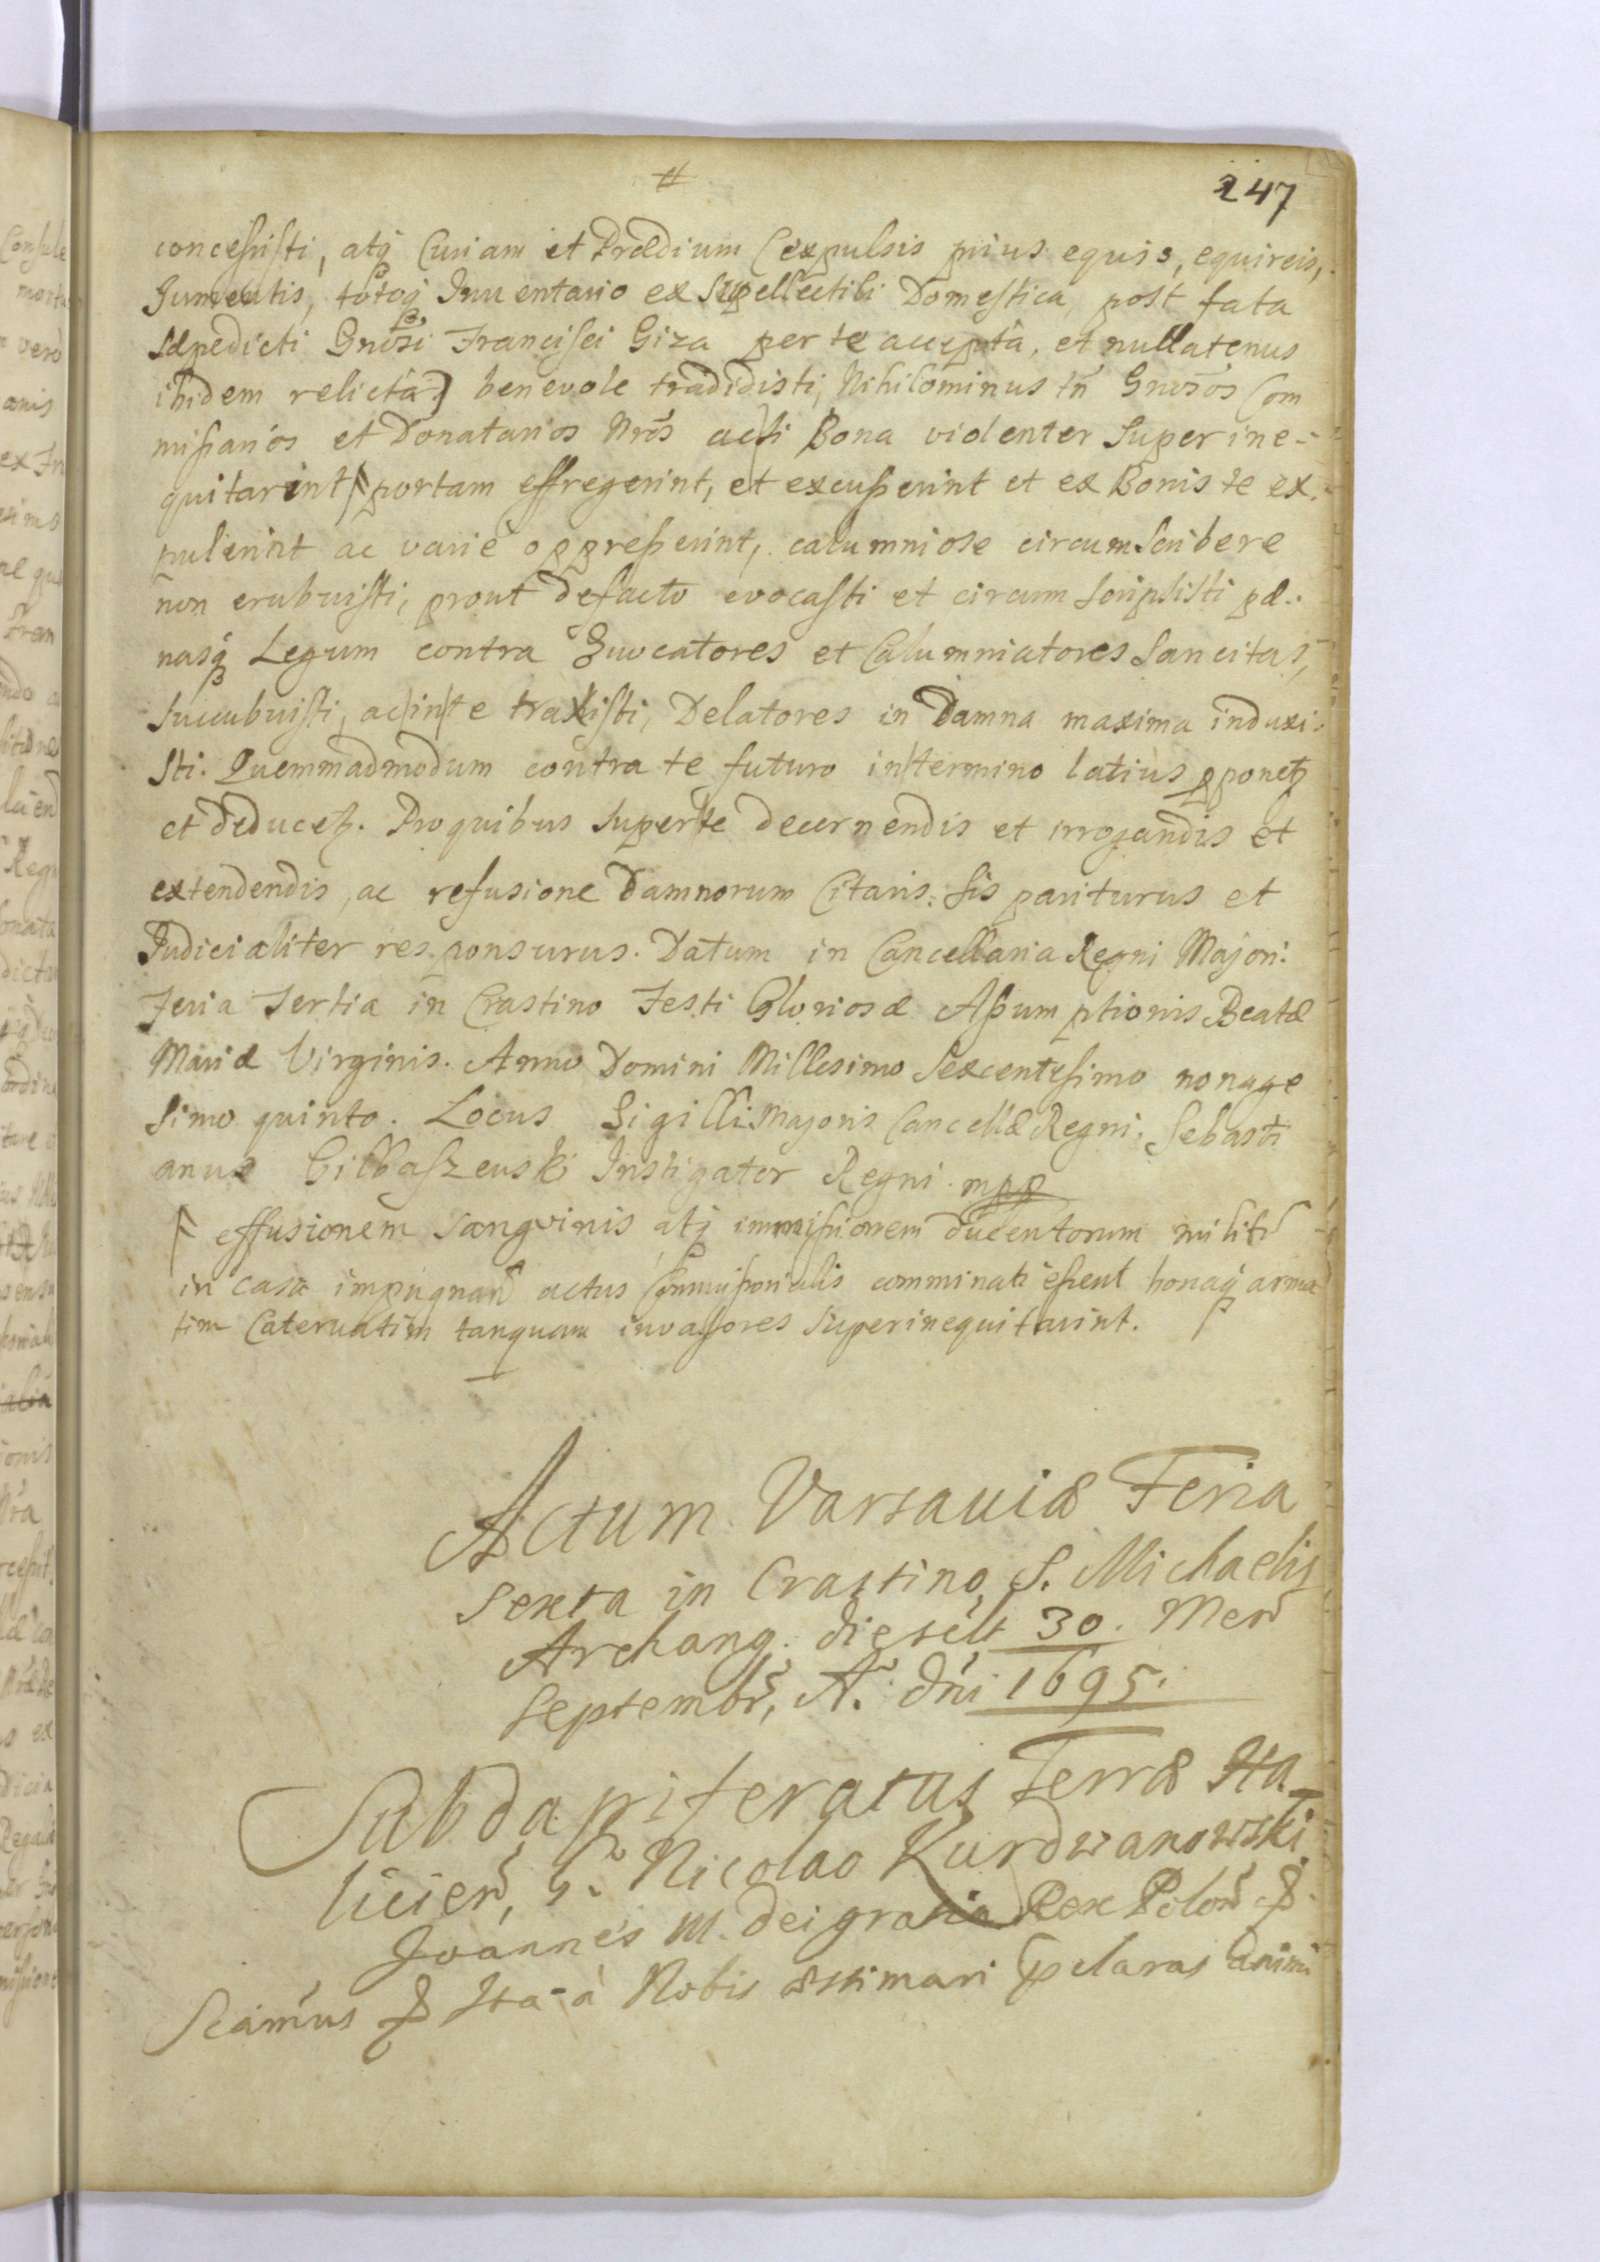 247
concessisti, atq Curiam et Prædium (expulsis prius equis, equireis,
Jumentis, totoq Inventario ex Supellectili Domestica, post fata
Sæpedicti Gnosi Francisci Giza per te acceptâ, et nullatenus
ibidem relictâ) benevole tradidisti, Nihilominus tn Gnosos Com
missarios et Donatarios Nros acsi Bona violenter Superine-
quitarint portam effregerint, et excusserint et ex Bonis te ex-
pulerint ac varie oppresserint, calumniose circumscribere
non erubuisti, prout defacto evocasti et circumscripsisti pæ-
nasq Legum contra Evocatores et Calumniatores Sancitas,
Succubuisti, ac in te traxisti, Delatores in Damna maxima induxi-
sti. Quemmadmodum contra te futuro in termino latius pponet
et deducet. Pro quibus super te decernendis et irrogandis et
extendendis, ac refusione Damnorum Citaris: sis pariturus et
Judicialiter responsurus. Datum in Cancellaria Regni Majori.
Feria Tertia in Crastino Festi Gloriosæ Assumptionis Beatæ
Mariæ Virginis. Anno Domini Millesimo Sexcentesimo nonage
simo quinto. Locus Sigilli Majoris Cancellæ Regni. Sebasti
anus Gilbaszewski Instigator Regni. mpp
effusionem sanguinis atq immissionem ducentorum milit
in casu impugnan actus Commissorialis comminati essent bonaq arma
tim Catervatim tanquam invasores superinequitarint.
Actum Varsaviæ Feria
Sexta in Crastino S. Michaelis
Archang. die 30. Men
Septembr, A. dni 1695.
Subdapiferatus Terræ Ha-
licien, G. Nicolao Kurdwanowski
Joannes III. Dei gratia Rex Polon &
Scimus & Ita à Nobis æstimari pclaras animi